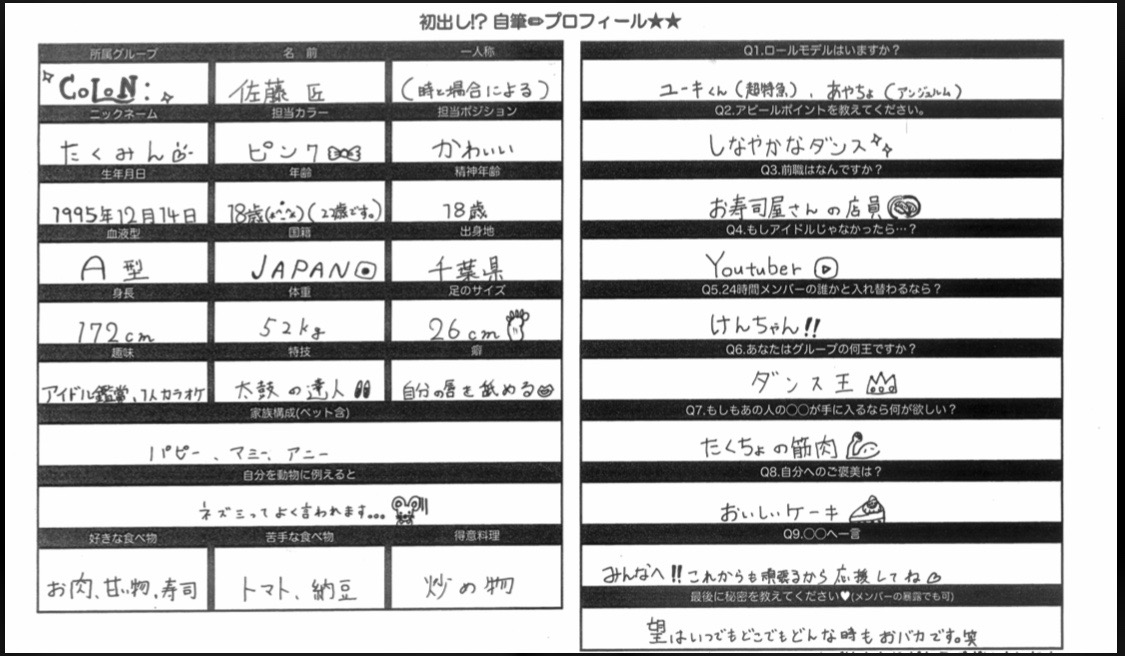 初出し!? 自筆✏プロフィール★★
所属グループ 名前 一人称
COLON: 佐藤 匠 (時と場合による)
ニックネーム 担当カラー 担当ポジション
たくみん ピンク かわいい
生年月日 年齢 精神年齢
1995年12月14日 18歳 (22歳です。) 18歳
血液型 国籍 出身地
A型 JAPAN 千葉県
身長 体重 足のサイズ
172cm 52kg 26cm
趣味 特技 癖
アイドル鑑賞、1人カラオケ 太鼓の達人 自分の唇を舐める
家族構成(ペット含)
パピー、マミー、アニー
自分を動物に例えると
ネズミってよく言われます...
好きな食べ物 苦手な食べ物 得意料理
お肉、甘い物、寿司 トマト、納豆 炒め物
Q1.ロールモデルはいますか?
ユーキくん(超特急)、あやちょ(アンジュルム)
Q2.アピールポイントを教えてください。
しなやかなダンス
Q3.前職はなんですか?
お寿司屋さんの店員
Q4.もしアイドルじゃなかったら…?
Youtuber
Q5.24時間メンバーの誰かと入れ替わるなら?
けんちゃん!!
Q6.あなたはグループの何王ですか?
ダンス王
Q7.もしもあの人の○○が手に入るなら何が欲しい?
たくちょの筋肉
Q8.自分へのご褒美は?
おいしいケーキ
Q9.○○へ一言
みんなへ!!これからも頑張るから応援してね
最後に秘密を教えてください♥(メンバーの暴露でも可)
望はいつでもどこでもどんな時もおバカです。笑